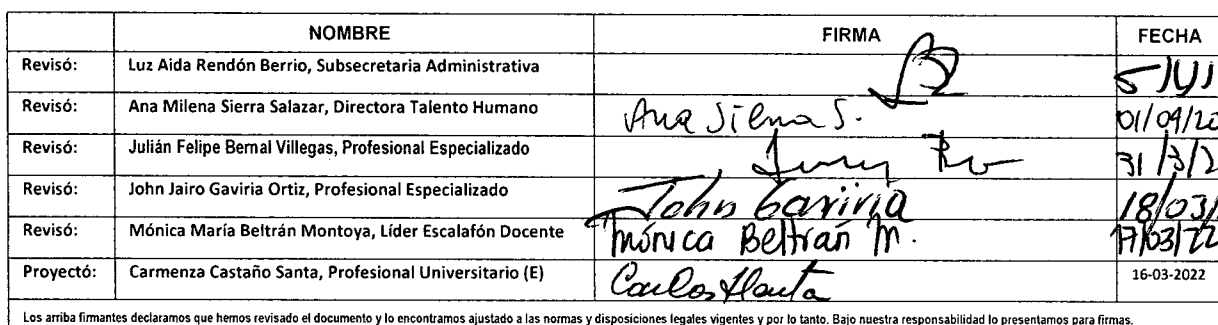 NOMBRE FIRMA FECHA
Revisó: Luz Aida Rendón Berrio, Subsecretaria Administrativa
Revisó: Ana Milena Sierra Salazar, Directora Talento Humano Ana Silena S. 01/04/20
Revisó: Julián Felipe Bernal Villegas, Profesional Especializado 31/3/2
Revisó: John Jairo Gaviria Ortiz, Profesional Especializado John Gaviria 18/03/
Revisó: Mónica María Beltrán Montoya, Líder Escalafón Docente Mónica Beltrán M. 17/03/22
Proyectó: Carmenza Castaño Santa, Profesional Universitario (E) 16-03-2022
Los arriba firmantes declaramos que hemos revisado el documento y lo encontramos ajustado a las normas y disposiciones legales vigentes y por lo tanto. Bajo nuestra responsabilidad lo presentamos para firmas.